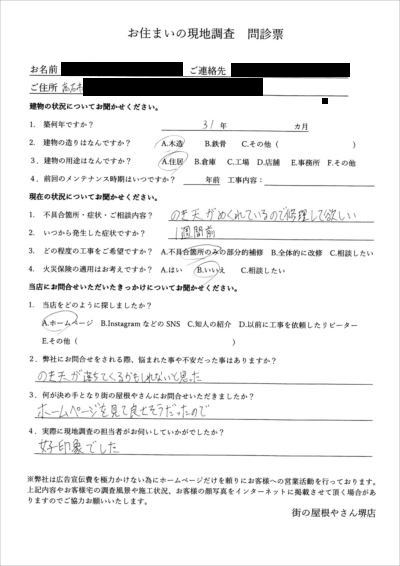 お住まいの現地調査　問診票
お名前　ご連絡先
ご住所 高石市
建物の状況についてお聞かせください。
1．築何年ですか？　31 年　カ月
2．建物の造りはなんですか？　A.木造　B.鉄骨　C.その他（　）
3．建物の用途はなんですか？　A.住居　B.倉庫　C.工場　D.店舗　E.事務所　F.その他
4．前回のメンテナンス時期はいつですか？　年前　工事内容：
現在の状況についてお聞かせください。
1．不具合箇所・症状・ご相談内容？　のき天がめくれているので修理して欲しい
2．いつから発生した症状ですか？　1週間前
3．どの程度の工事をご希望ですか？ A.不具合箇所のみの部分的補修 B.全体的に改修 C.相談したい
4．火災保険の適用はお考えですか？ A.はい　B.いいえ　C.相談したい
当店にお問合せいただいたきっかけについてお聞かせください。
1．当店をどのように探しましたか？
A.ホームページ　B.Instagram などの SNS　C.知人の紹介　D.以前に工事を依頼したリピーター
E.その他（　）
2．弊社にお問合せをされる際、悩まれた事や不安だった事はありますか？
のき天が落ちてくるかもしれないと思った
3．何が決め手となり街の屋根やさんにお問合せいただきましたか？
ホームページを見て良さそうだったので
4．実際に現地調査の担当者がお伺いしていかがでしたか？
好印象でした
※弊社は広告宣伝費を極力かけない為にホームページだけを頼りにお客様への営業活動を行っております。
上記内容やお客様宅の調査風景や施工状況、お客様の顔写真をインターネットに掲載させて頂く場合があ
りますのでご協力お願いいたします。
街の屋根やさん堺店